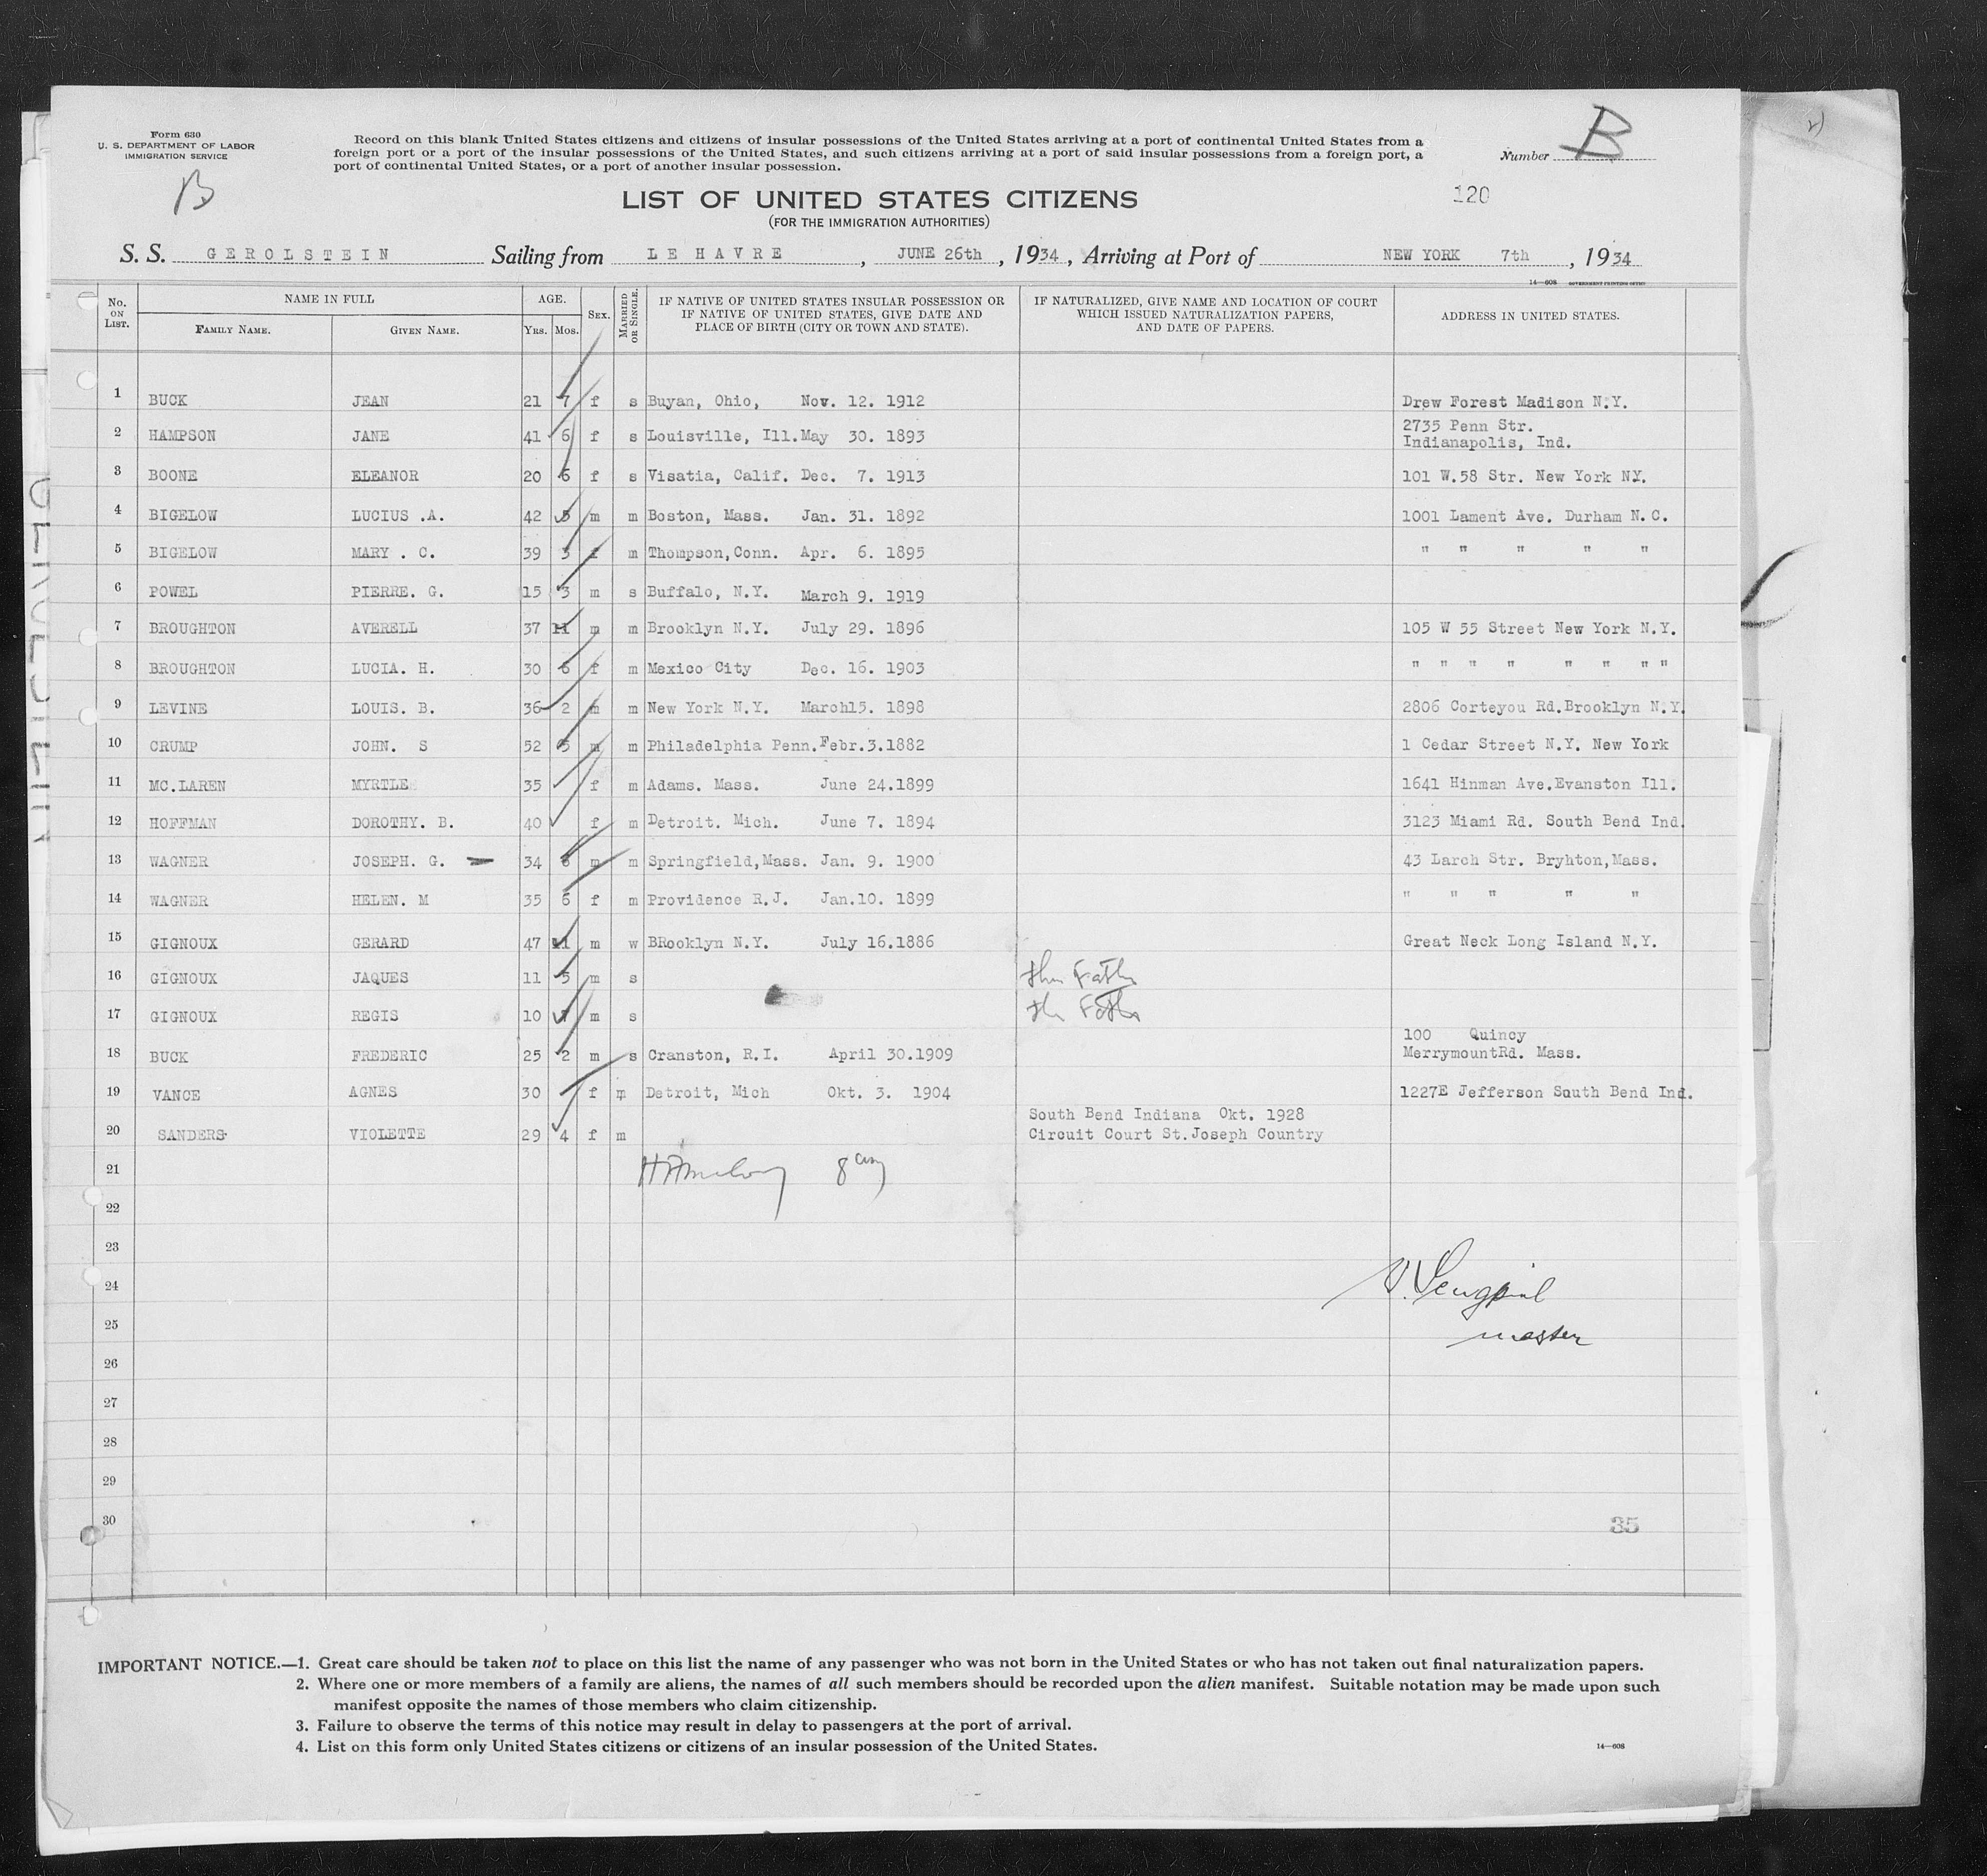 Form 630
U. S. DEPARTMENT OF LABOR
IMMIGRATION SERVICE
B
Record on this blank United States citizens and citizens of insular possessions of the United States arriving at a port of continental United States from a
foreign port or a port of the insular possessions of the United States, and such citizens arriving at a port of said insular possessions from a foreign port, a
port of continental United States, or a port of another insular possession.
Number B
LIST OF UNITED STATES CITIZENS
(FOR THE IMMIGRATION AUTHORITIES)
120
S. S. GEROLSTEIN Sailing from LE HAVRE, JUNE 26th, 1934, Arriving at Port of NEW YORK 7th, 1934
14—608 GOVERNMENT PRINTING OFFICE
No. ON LIST. NAME IN FULL FAMILY NAME. GIVEN NAME. AGE. Yrs. Mos. SEX. MARRIED OR SINGLE.
IF NATIVE OF UNITED STATES INSULAR POSSESSION OR
IF NATIVE OF UNITED STATES, GIVE DATE AND
PLACE OF BIRTH (CITY OR TOWN AND STATE).
IF NATURALIZED, GIVE NAME AND LOCATION OF COURT
WHICH ISSUED NATURALIZATION PAPERS,
AND DATE OF PAPERS.
ADDRESS IN UNITED STATES.
1 BUCK JEAN 21 7 f s Buyan, Ohio, Nov. 12. 1912 Drew Forest Madison N.Y.
2 HAMPSON JANE 41 6 f s Louisville, Ill. May 30. 1893 2735 Penn Str.
Indianapolis, Ind.
3 BOONE ELEANOR 20 6 f s Visatia, Calif. Dec. 7. 1913 101 W.58 Str. New York NY.
4 BIGELOW LUCIUS .A. 42 5 m m Boston, Mass. Jan. 31. 1892 1001 Lament Ave. Durham N.C.
5 BIGELOW MARY . C. 39 3 f m Thompson,Conn. Apr. 6. 1895 " " " " "
6 POWEL PIERRE. G. 15 3 m s Buffalo, N.Y. March 9. 1919
7 BROUGHTON AVERELL 37 11 m m Brooklyn N.Y. July 29. 1896 105 W 55 Street New York N.Y.
8 BROUGHTON LUCIA. H. 30 6 f m Mexico City Dec. 16. 1903 " " " " " " " "
9 LEVINE LOUIS. B. 36 2 m m New York N.Y. March15. 1898 2806 Corteyou Rd.Brooklyn N.Y.
10 CRUMP JOHN. S 52 5 m m Philadelphia Penn.Febr.3.1882 1 Cedar Street N.Y. New York
11 MC.LAREN MYRTLE 35 f m Adams. Mass. June 24.1899 1641 Hinman Ave.Evanston Ill.
12 HOFFMAN DOROTHY. B. 40 f m Detroit. Mich. June 7. 1894 3123 Miami Rd. South Bend Ind.
13 WAGNER JOSEPH. G. 34 6 m m Springfield,Mass. Jan. 9. 1900 43 Larch Str. Bryhton,Mass.
14 WAGNER HELEN. M 35 6 f m Providence R.J. Jan.10. 1899 " " " " "
15 GIGNOUX GERARD 47 11 m w BRooklyn N.Y. July 16.1886 Great Neck Long Island N.Y.
16 GIGNOUX JAQUES 11 5 m s thru Father
17 GIGNOUX REGIS 10 m s thr Father
18 BUCK FREDERIC 25 2 m s Cranston, R.I. April 30.1909 100 Quincy
MerrymountRd. Mass.
19 VANCE AGNES 30 f m Detroit, Mich Okt. 3. 1904 1227E Jefferson South Bend Ind.
20 SANDERS VIOLETTE 29 4 f m South Bend Indiana Okt. 1928
Circuit Court St.Joseph Country
21
22
23
24
25
master
26
27
28
29
30
35
IMPORTANT NOTICE.—1. Great care should be taken not to place on this list the name of any passenger who was not born in the United States or who has not taken out final naturalization papers.
2. Where one or more members of a family are aliens, the names of all such members should be recorded upon the alien manifest. Suitable notation may be made upon such
manifest opposite the names of those members who claim citizenship.
3. Failure to observe the terms of this notice may result in delay to passengers at the port of arrival.
4. List on this form only United States citizens or citizens of an insular possession of the United States.
14—608